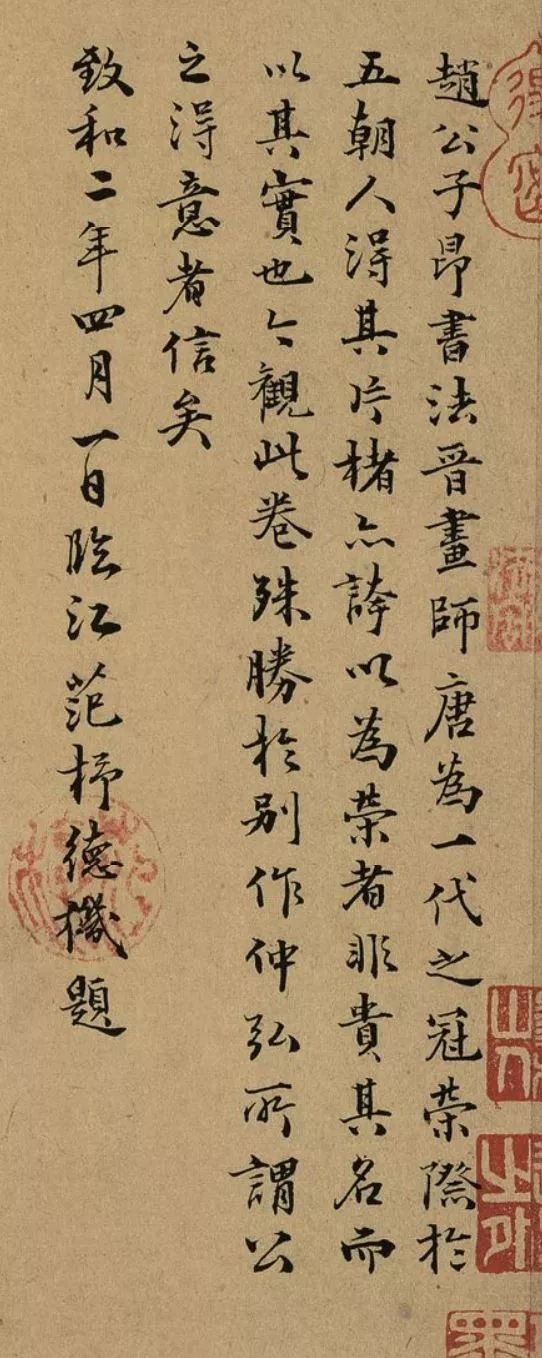 趙公子昂書法晉畫師唐為一代之冠榮際於
五朝人得其片楮亦誇以為榮者非貴其名而
以其實也今觀此卷殊勝於别作仲弘所謂公
之得意者信矣
致和二年四月一日臨江范杼德機題